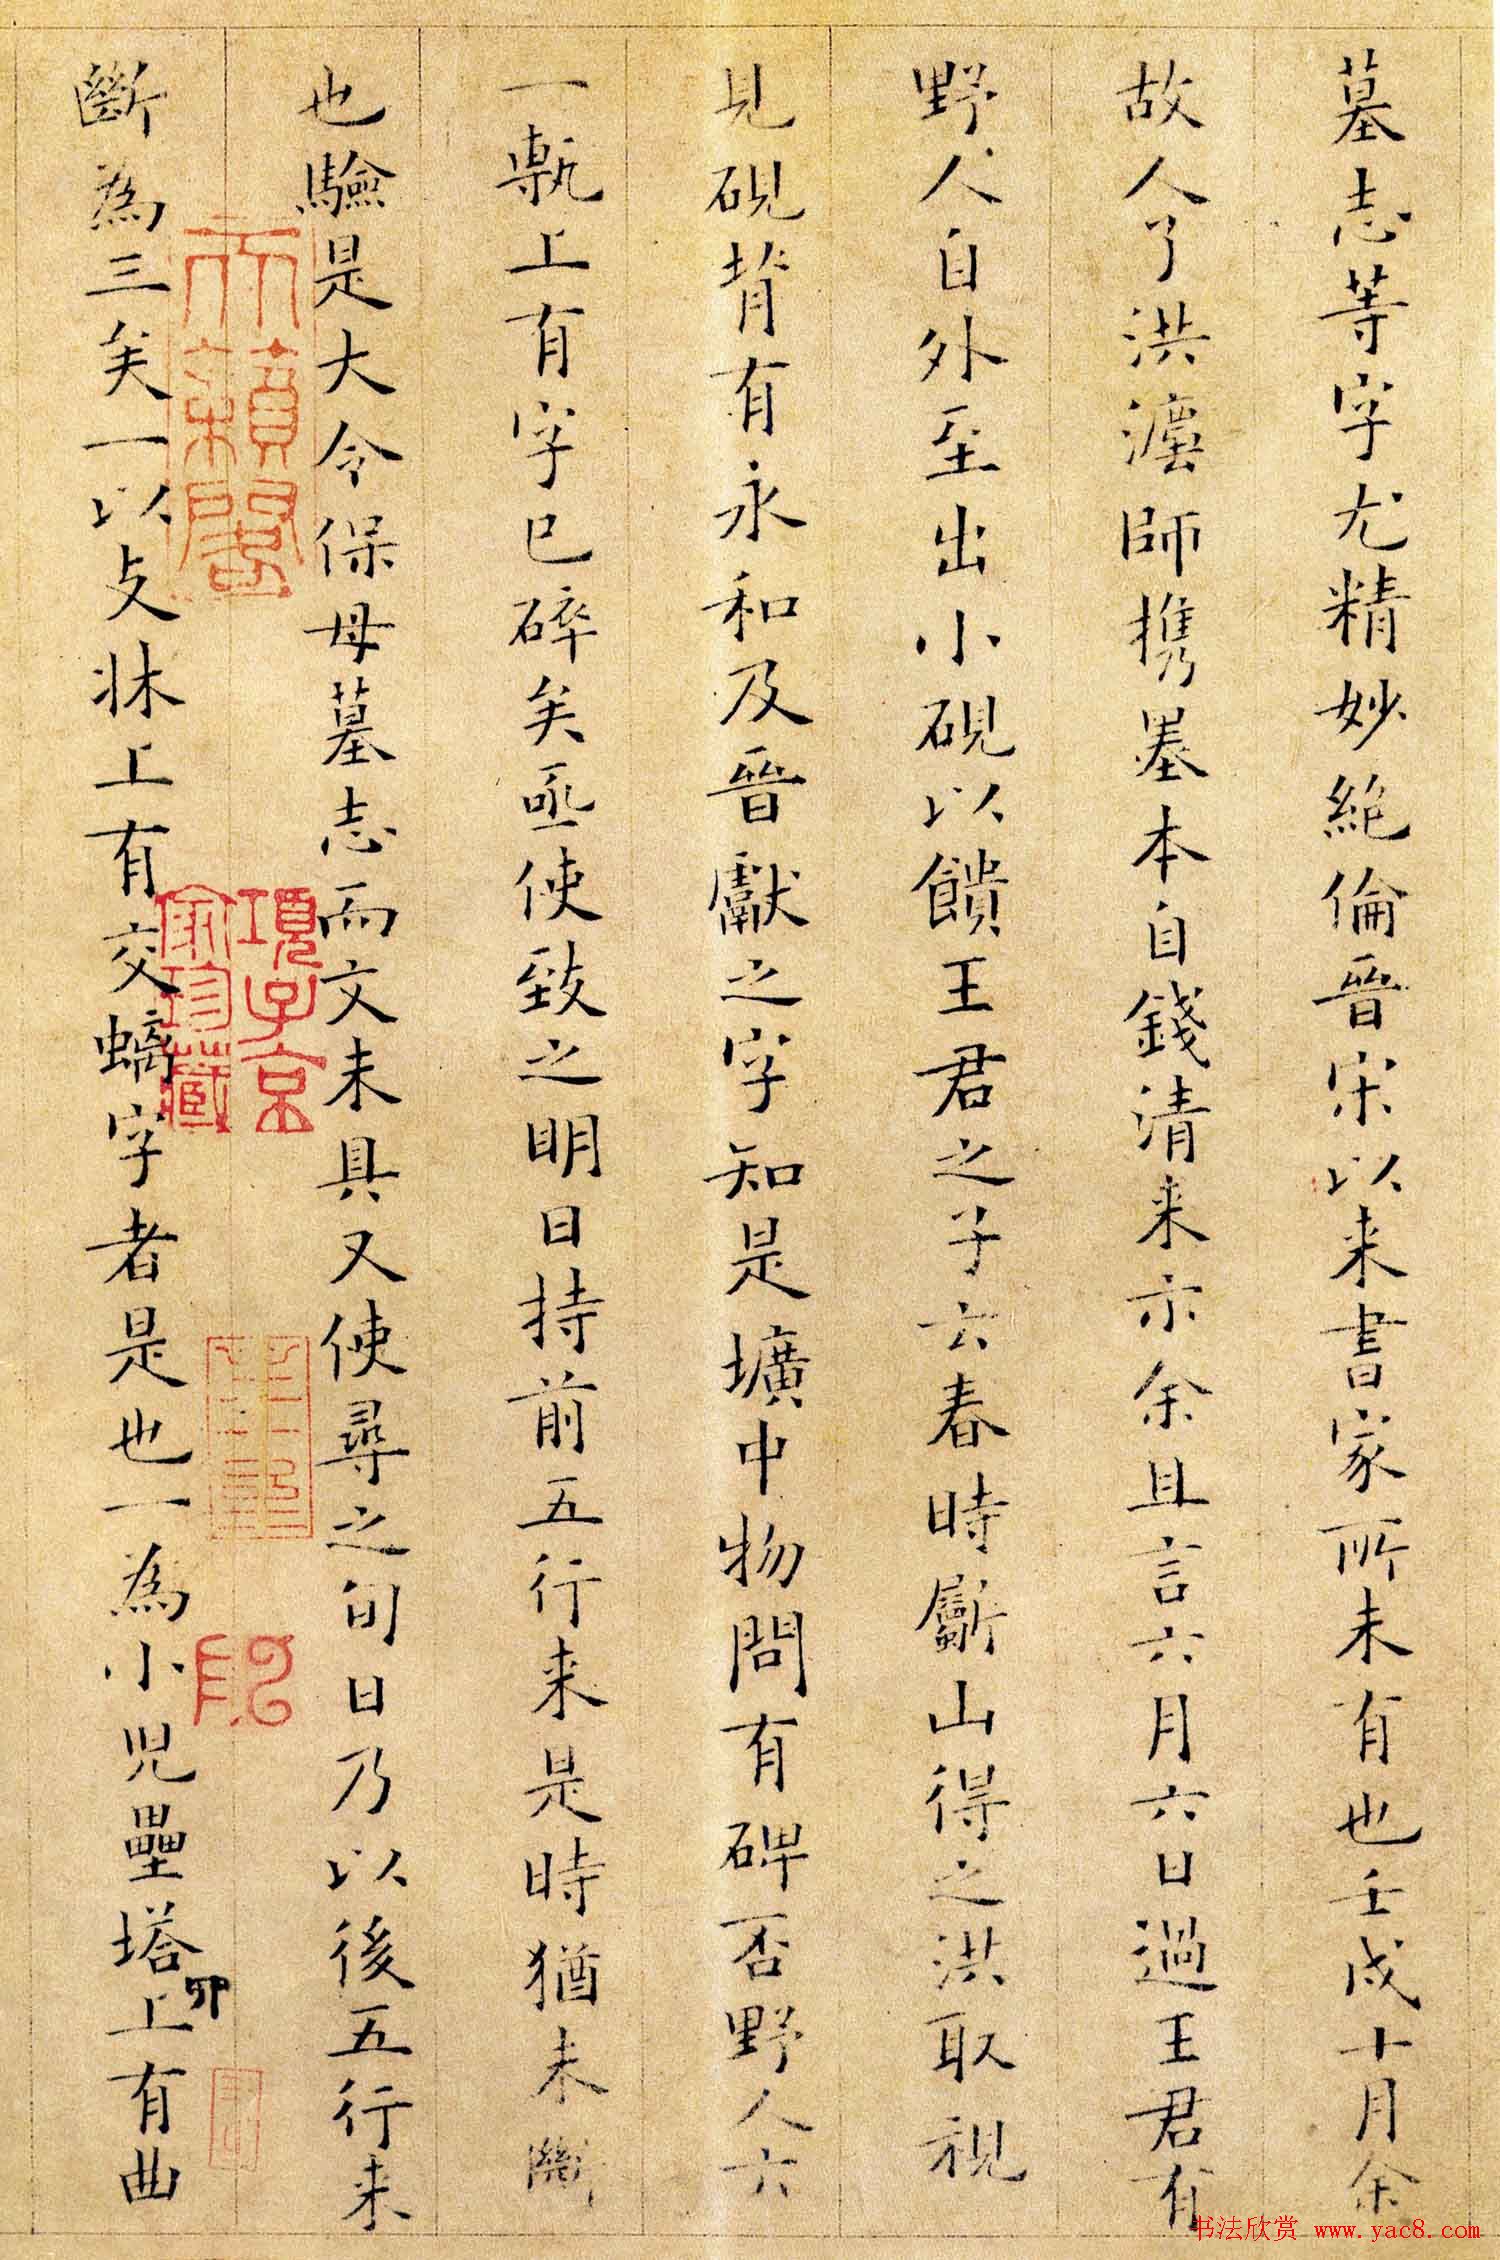 墓志等字尤精妙絕倫晉宋以来書家所未有也壬戌十月余
故人了洪澐師携墨本自錢清来示余且言六月六日過王君有
野人自外至出小硯以饋王君之子六春時斸山得之洪取視
見硯背有永和及晉獻之字知是壙中物問有碑否野人六
一甎上有字已碎矣亟使致之明日持前五行来是時猶未斷
也驗是大令保母墓志而文未具又使尋之旬日乃以後五行来
斷為三矣一以支牀上有交螭字者是也一為小児壘塔上有曲
項子京
家珍藏
天籟閣
书法欣赏 www.yac8.com